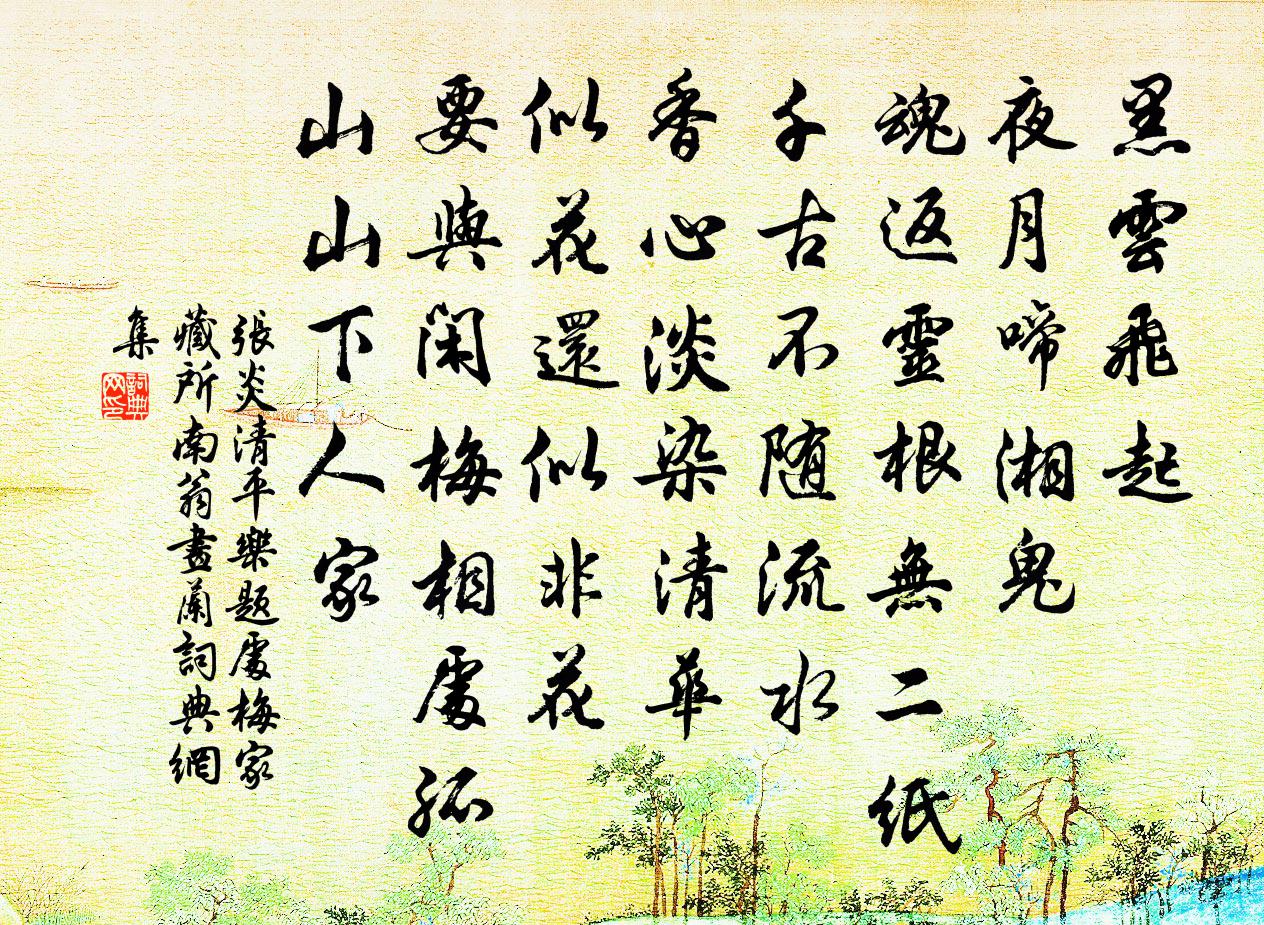 黑雲飛起
夜月啼湘鬼
魂返靈根無二紙
千古不随流水
香心淡染清華
似花還似非花
要與閑梅相處孤
山山下人家
張炎清平樂題處梅家
藏所南翁畫蘭詞典網
集
詞典
网印